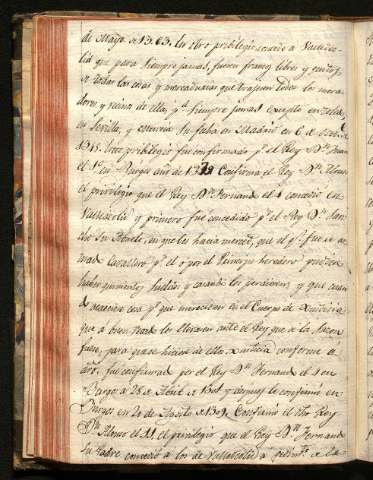 de Mayo de 1363. En otro privilegio concede a Vallado
lid que para siempre jamas, fuesen francos libres y quitos
de todas las cosas y mercadurias que trajesen todos los mora
dores y vecinos de ella, pª siempre jamas excepto en Toledo,
en Sevilla, y Murcia su fecha en Madrid en 6 de
1315. Este pribilegio fue confirmado pr el Rey Dn Juan
el 1º en Burgos año de 1379 Confirma el Rey Dn Alonso
el privilegio que el Rey Dn Fernando el 4 concedió en
Valladolid y primero fue concedido pr el Rey Dn San
cho su Padre, en que les hacia merced, que el qe fuese ar
mado Caballero pr el o por el Principe heredero pueden
haber quinientos sueldos y cuando los perdieren, y que cuan
do acaeciere cosa pr que mereciesen en el Cuerpo de Justicia
que a buen recado los lleven ante el Rey que a la sazon
fuere, para que se hiciese de ellos Justicia conforme a
dro, fue confirmado por el Rey Dn Fernando el 4 en
Burgos a 28 de Abril de 1301 y despues le confirmo en
Burgos en 20 de Julio de 1309. Confirmo el dho Rey
Dn Alonso el 11, el privilegio que el Rey Dn Fernando
Su Padre concedió a los de Valladolid a pedimto de la